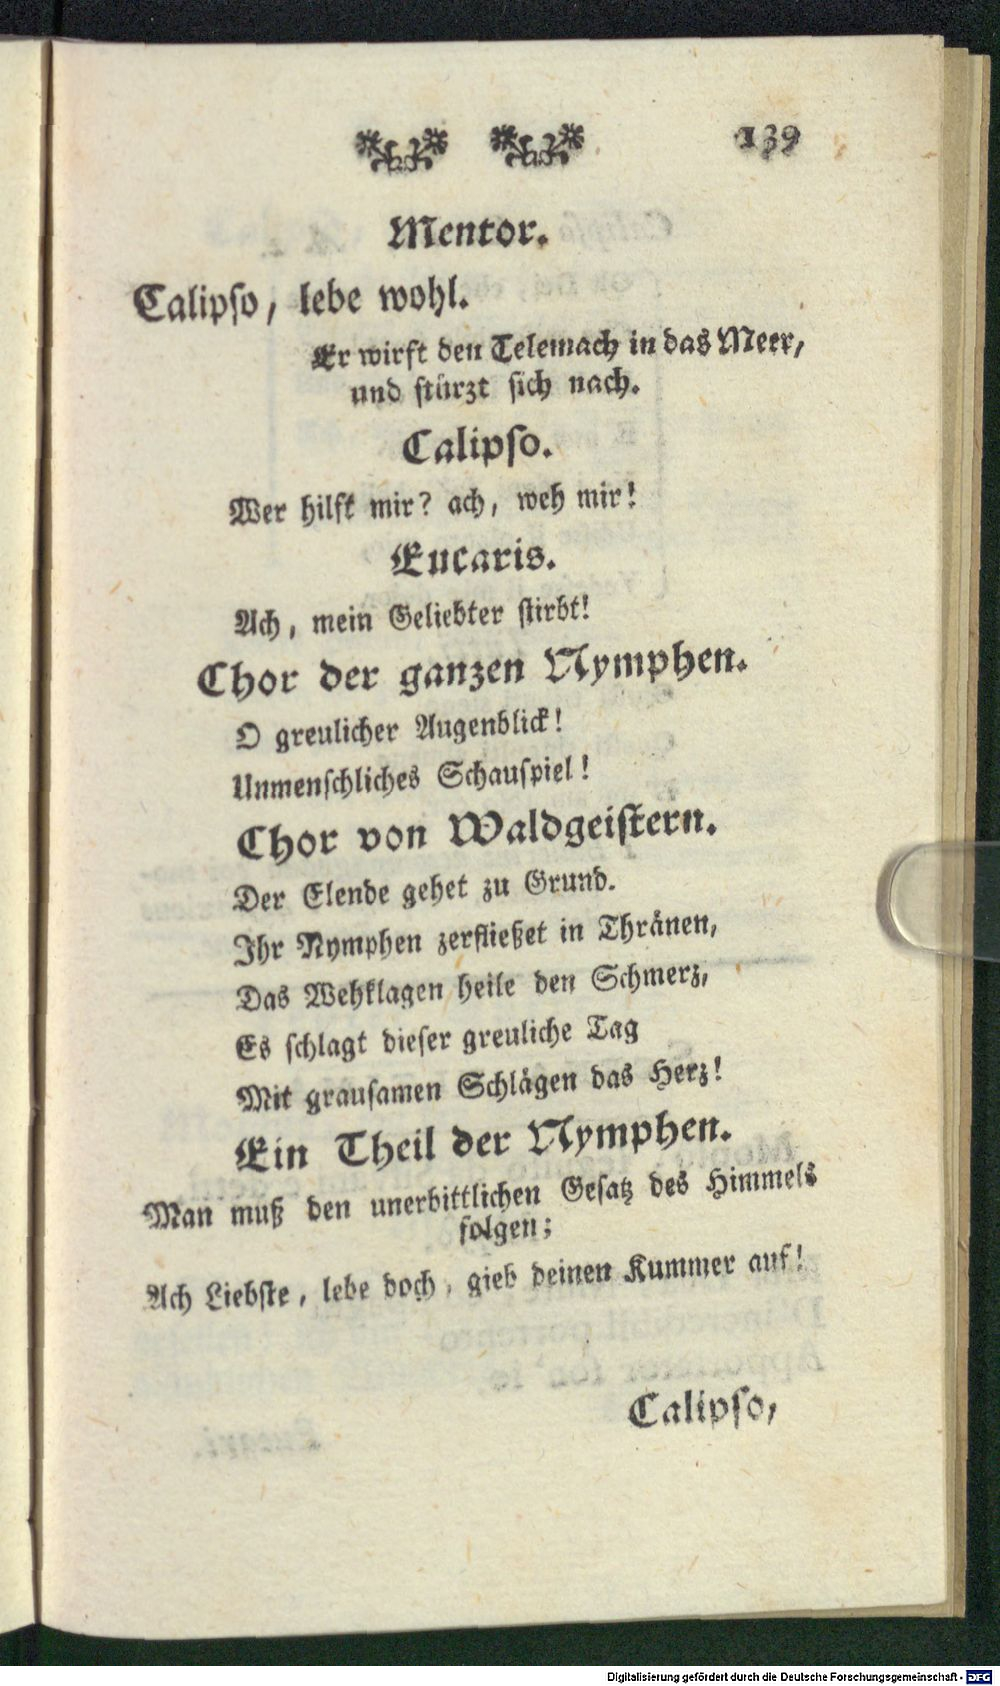 139
Mentor.
Calipso, lebe wohl.
Er wirft den Telemach in das Meer,
und stürzt sich nach.
Calipso.
Wer hilft mir? ach, weh mir!
Eucaris.
Ach, mein Geliebter stirbt!
Chor der ganzen Nymphen.
O greulicher Augenblick!
Unmenschliches Schauspiel!
Chor von Waldgeistern.
Der Elende gehet zu Grund.
Ihr Nymphen zerfließet in Thränen,
Das Wehklagen heile den Schmerz,
Es schlagt dieser greuliche Tag
Mit grausamen Schlägen das Herz!
Ein Theil der Nymphen.
Man muß den unerbittlichen Gesatz des Himmels
folgen;
Ach Liebste, lebe doch, gieb deinen Kummer auf!
Calipso,
Digitalisierung gefördert durch die Deutsche Forschungsgemeinschaft - DFG